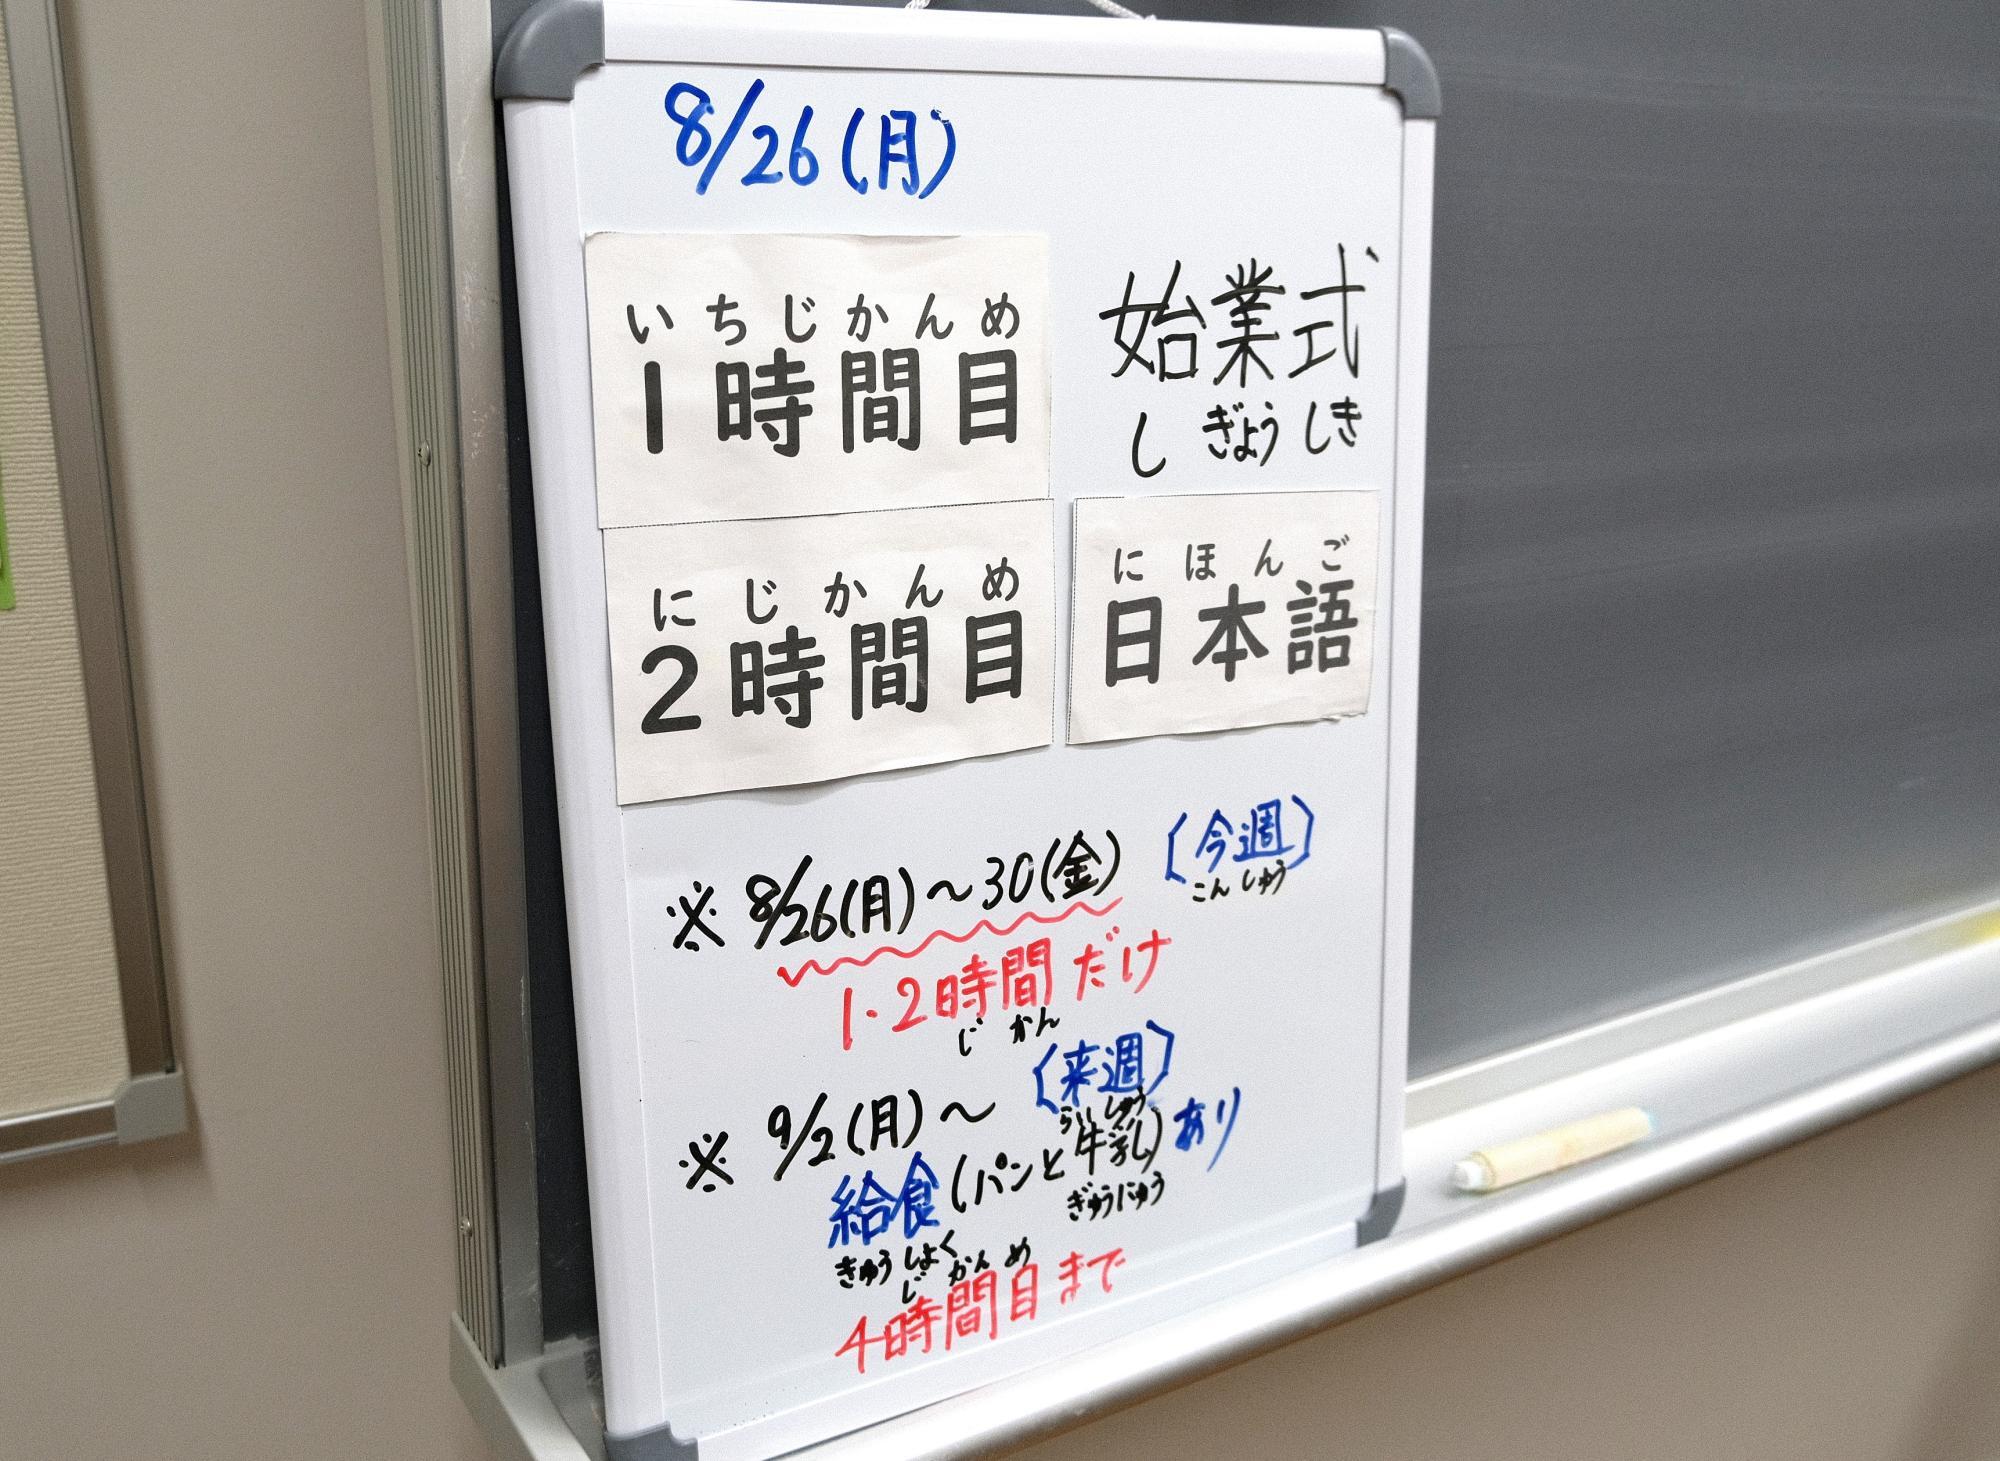 8/26(月)
いちじかんめ
1時間目
始業式
しぎょうしき
にじかんめ
2時間目
にほんご
日本語
※ 8/26(月)～30(金) (今週)
こんしゅう
1・2時間だけ
じかん
(来週)
らいしゅう
※ 9/2(月)～
給食(パンと牛乳)あり
ぎゅうにゅう
きゅうしょく
じかんめ
4時間目まで